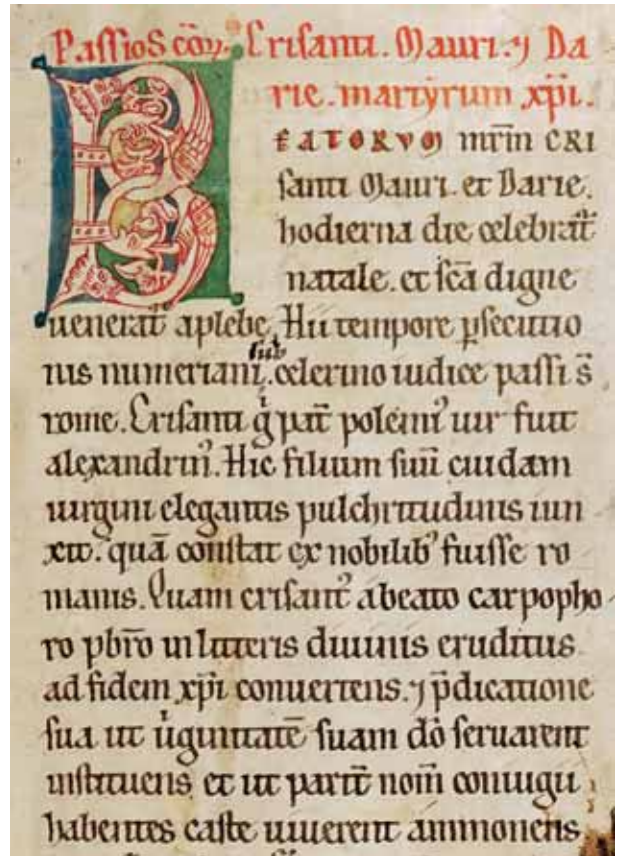 Passio Scōꝝ. Crisanti. Mauri. ⁊ Da
rie. martyrum xp̄i.
BEATORVM mr̄m CRI
santi Mauri. et Darie.
hodierna die celebrat᷑
natale. et sc̄a digne
uenerat᷑ a plebe. Hii tempore p̱secutio
nis numeriani. sub celerino iudice passi s̄
rome. Crisanti g̊ pat̄ polemiꝰ uir fuit
alexandrinꝰ. Hic filium suū cuidam
uirgini elegantis pulchritudinis iun
xit. quā constat ex nobilibꝰ fuisse ro
manis. Quam crisantꝰ a beato carpopho
ro pb̄ro in litteris diuinis eruditus
ad fidem xp̄i conuertens. ⁊ p̄dicatione
sua ut uͥginitatē suam dō seruarent
instituens et ut parit̄ nom̄ coniugii
habentes caste uiuerent ammonens